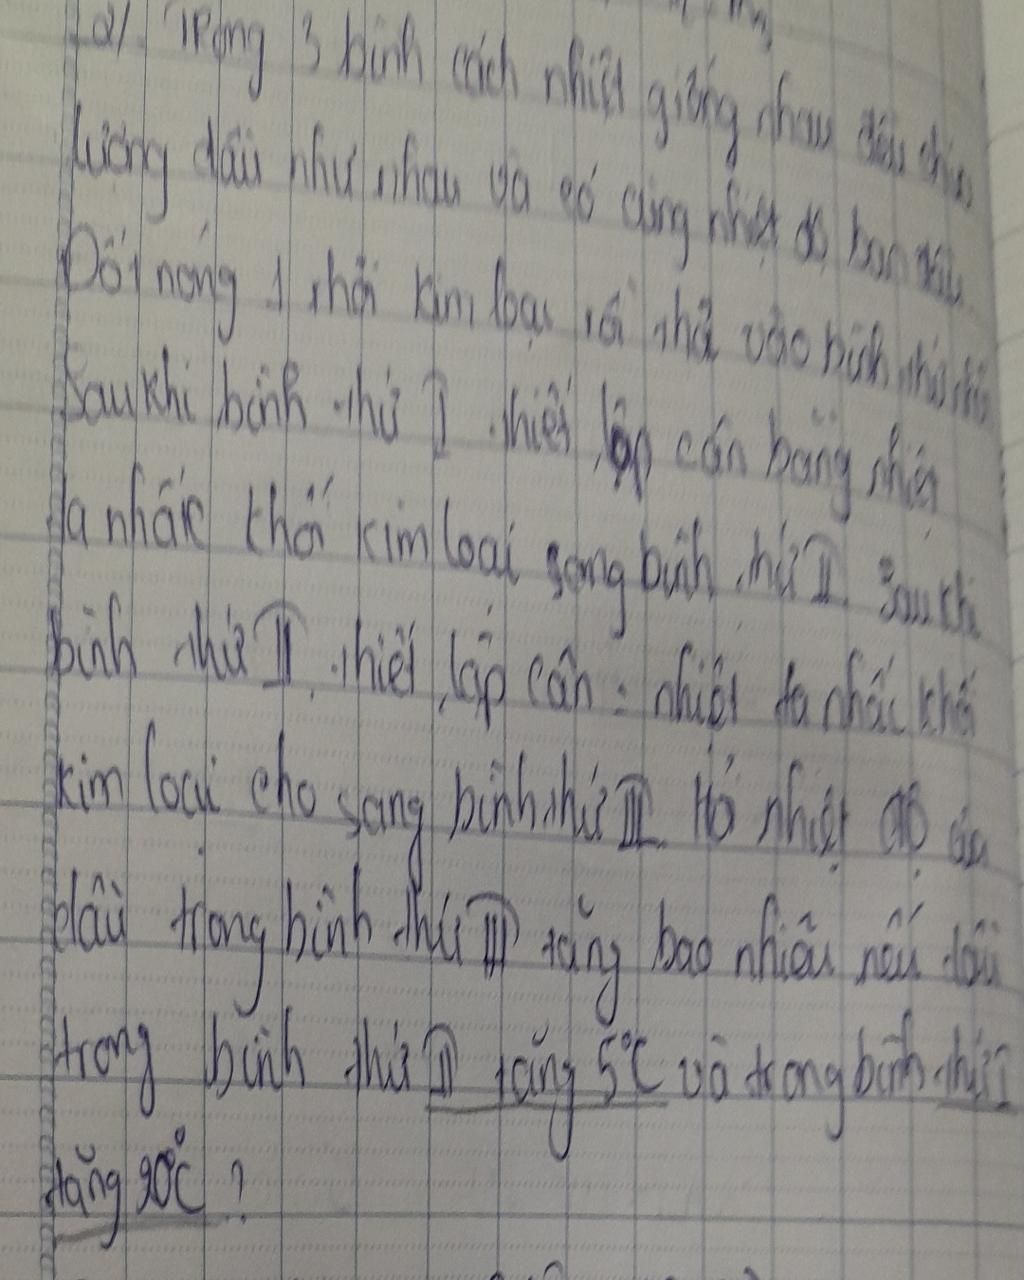 2/. Trong 3 bình cách nhiệt giống nhau đều chứa
lượng dầu như nhau và có cùng nhiệt độ ban đầu.
Đốt nóng 1 thỏi kim loại rồi thả vào bình thứ
Sau khi bình thứ I thiết lập cân bằng nhiệt
ta nhấc khối kim loại sang bình thứ II. Sau khi
bình thứ II thiết lập cân = nhiệt ta nhấc khối
kim loại cho sang bình thứ III. Hỏi nhiệt độ của
dầu trong bình thứ III tăng bao nhiêu nếu dầu
trong bình thứ II tăng 5°C và trong bình thứ I
tăng 20°C ?